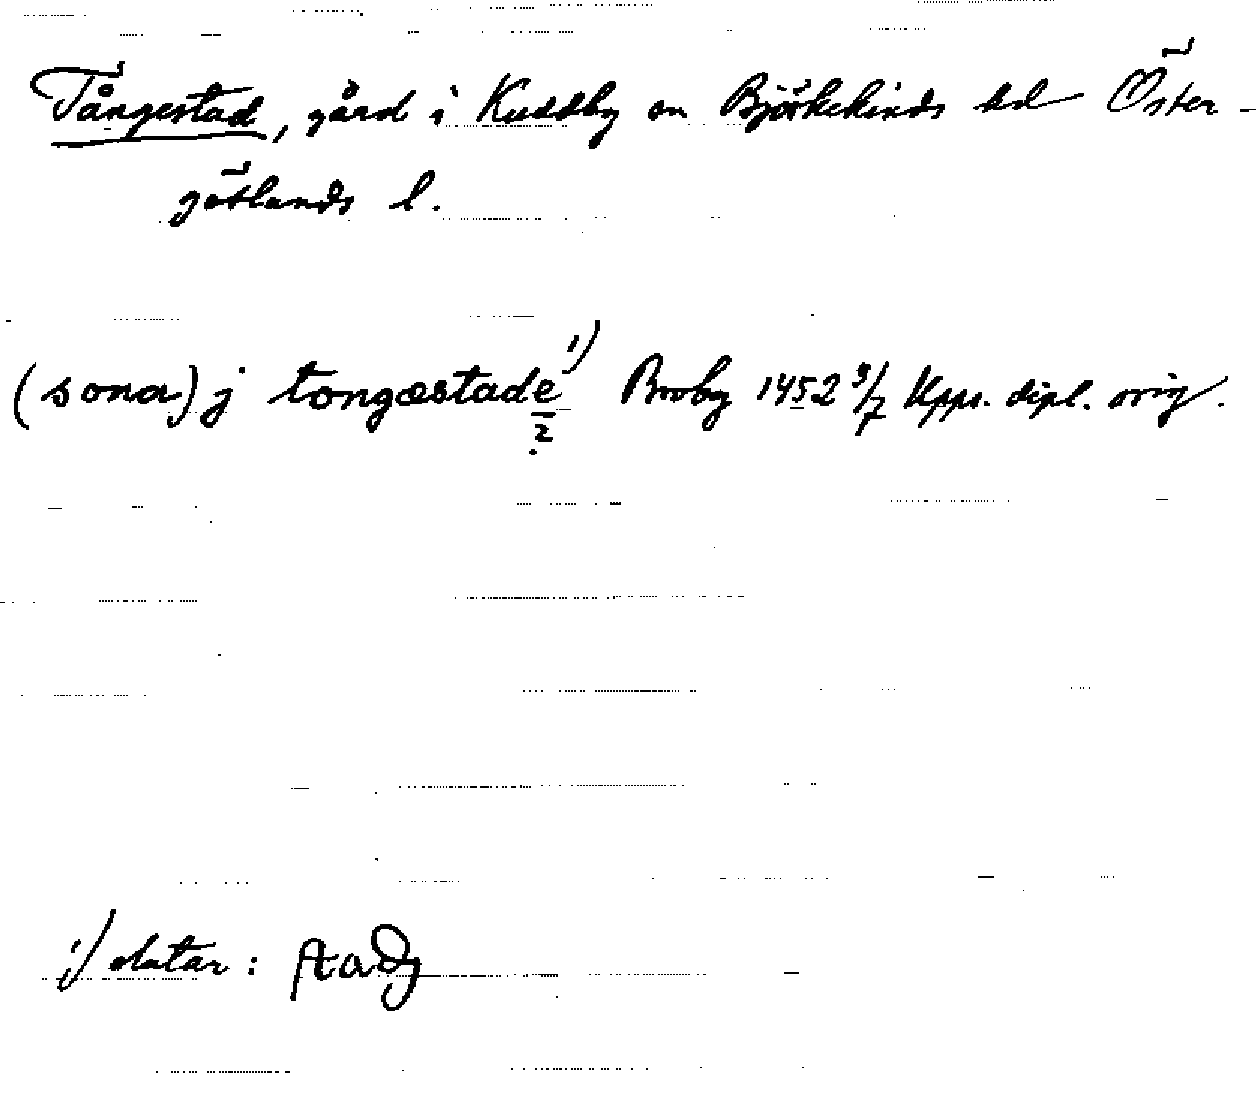 Tångestad, gård i Kuddby sn Björkekinds hd Öster-
götlands l.
(sona) j tongæstade 1) Broby 1452 9/7 Kpps. dipl. orig.
2
1) slutar: